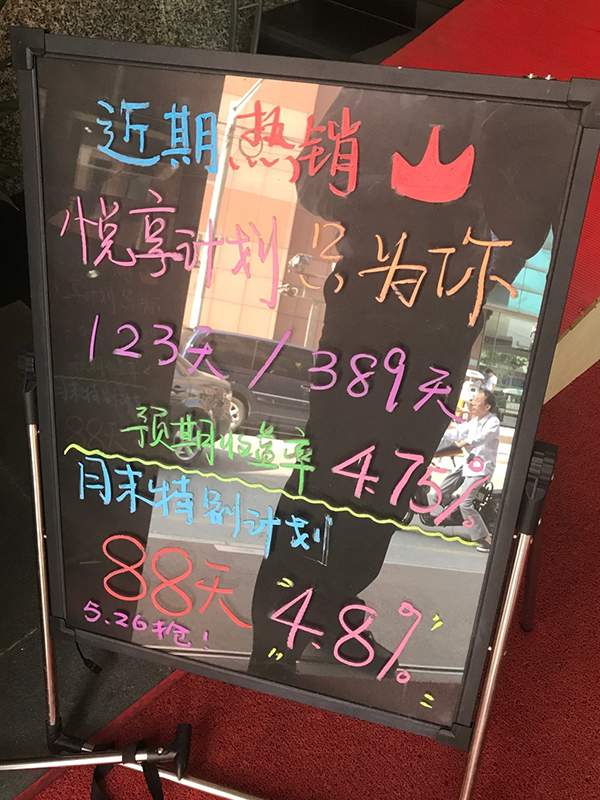 近期热销
悦享计划 只为你
123天/389天
预期收益率 4.75%
月末特别计划
88天 "4.8%"
5.26抢!